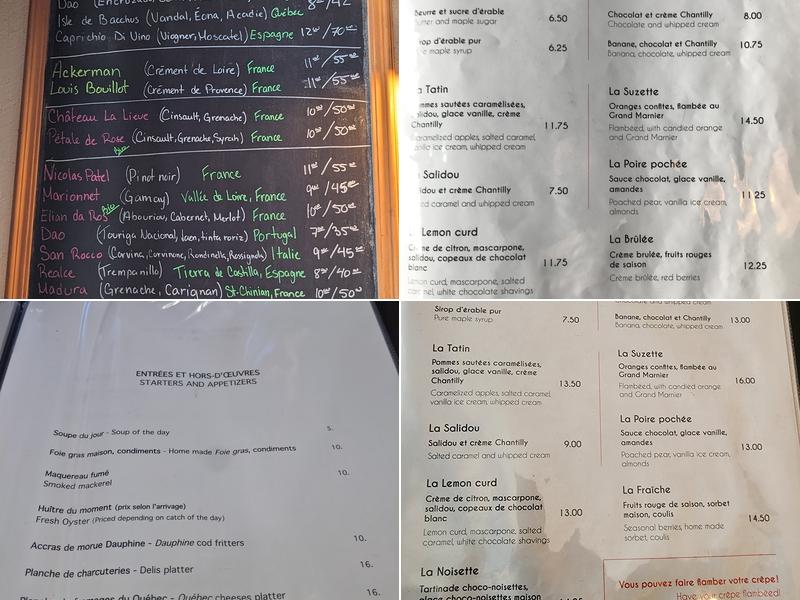 Isle de Bacchus (Vandal, Éona, Acadie) Québec
Caprichio Di Vino (Viogner, Moscatel) Espagne 12⁰⁰/70⁰⁰
Ackerman (Crément de Loire) France 11⁰⁰/55⁰⁰
Louis Bouillot (Crément de Provence) France 11⁰⁰/55⁰⁰
Château La Lieue (Cinsault, Grenache) France 10⁰⁰/50⁰⁰
Pétale de Rose (Cinsault, Grenache, Syrah) France 10⁰⁰/50⁰⁰
Bio
Nicolas Patel (Pinot noir) France 11⁰⁰/55⁰⁰
Marionnet (Gamay) Vallée de Loire, France 9⁰⁰/45⁰⁰
Elian da Ros Bio (Abouriou, Cabernet, Merlot) France 10⁰⁰/50⁰⁰
Dao (Touriga Nacional, Jaen, tinta roriz) Portugal 7⁰⁰/35⁰⁰
San Rocco (Corvina, Corvinone, Rondinella, Rossignola) Italie 9⁰⁰/45⁰⁰
Realce (Trempanillo) Tierra de Castilla, Espagne 8⁰⁰/40⁰⁰
Madura (Grenache, Carignan) St-Chinian, France 10⁰⁰/50⁰⁰
Beurre et sucre d'érable 6.50
and maple sugar
d'érable pur 6.25
maple syrup
Tatin
sautées caramélisées,
salidou, glace vanille, crème
Chantilly 11.75
Caramelized apples, salted caramel,
vanilla ice cream, whipped cream
Salidou
et crème Chantilly 7.50
caramel and whipped cream
Lemon curd
de citron, mascarpone,
salidou, copeaux de chocolat
blanc 11.75
Lemon curd, mascarpone, salted
caramel, white chocolate shavings
Chocolat et crème Chantilly 8.00
Chocolate and whipped cream
Banane, chocolat et Chantilly 10.75
Banana, chocolate, whipped cream
La Suzette
Oranges confites, flambée au
Grand Marnier 14.50
Flambéed, with candied orange
and Grand Marnier
La Poire pochée
Sauce chocolat, glace vanille,
amandes 11.25
Poached pear, vanilla ice cream,
almonds
La Brûlée
Crème brûlée, fruits rouges
de saison 12.25
Crème brulée, red berries
ENTRÉES ET HORS-D'ŒUVRES
STARTERS AND APPETIZERS
Soupe du jour - Soup of the day 5.
Foie gras maison, condiments - Home made Foie gras, condiments 10.
Maquereau fumé 10.
Smoked mackerel
Huître du moment (prix selon l'arrivage)
Fresh Oyster (Priced depending on catch of the day)
Accras de morue Dauphine - Dauphine cod fritters 10.
Planche de charcuteries - Delis platter 16.
Planche de fromages du Québec - Québec cheeses platter 16.
Sirop d'érable pur
Pure maple syrup 7.50
La Tatin
Pommes sautées caramélisées,
salidou, glace vanille, crème
Chantilly 13.50
Caramelized apples, salted caramel,
vanilla ice cream, whipped cream
La Salidou
Salidou et crème Chantilly 9.00
Salted caramel and whipped cream
La Lemon curd
Crème de citron, mascarpone,
salidou, copeaux de chocolat
blanc 13.00
Lemon curd, mascarpone, salted
caramel, white chocolate shavings
La Noisette
Tartinade choco-noisettes,
glace choco-noisettes maison
Chocolate and whipped cream
Banane, chocolat et Chantilly 13.00
Banana, chocolate, whipped cream
La Suzette
Oranges confites, flambée au
Grand Marnier 16.00
Flambéed, with candied orange
and Grand Marnier
La Poire pochée
Sauce chocolat, glace vanille,
amandes 13.00
Poached pear, vanilla ice cream,
almonds
La Fraîche
Fruits rouge de saison, sorbet
maison, coulis 14.50
Seasonal berries, home made
sorbet, coulis
Vous pouvez faire flamber votre crêpe!
Have your crêpe flambéed!